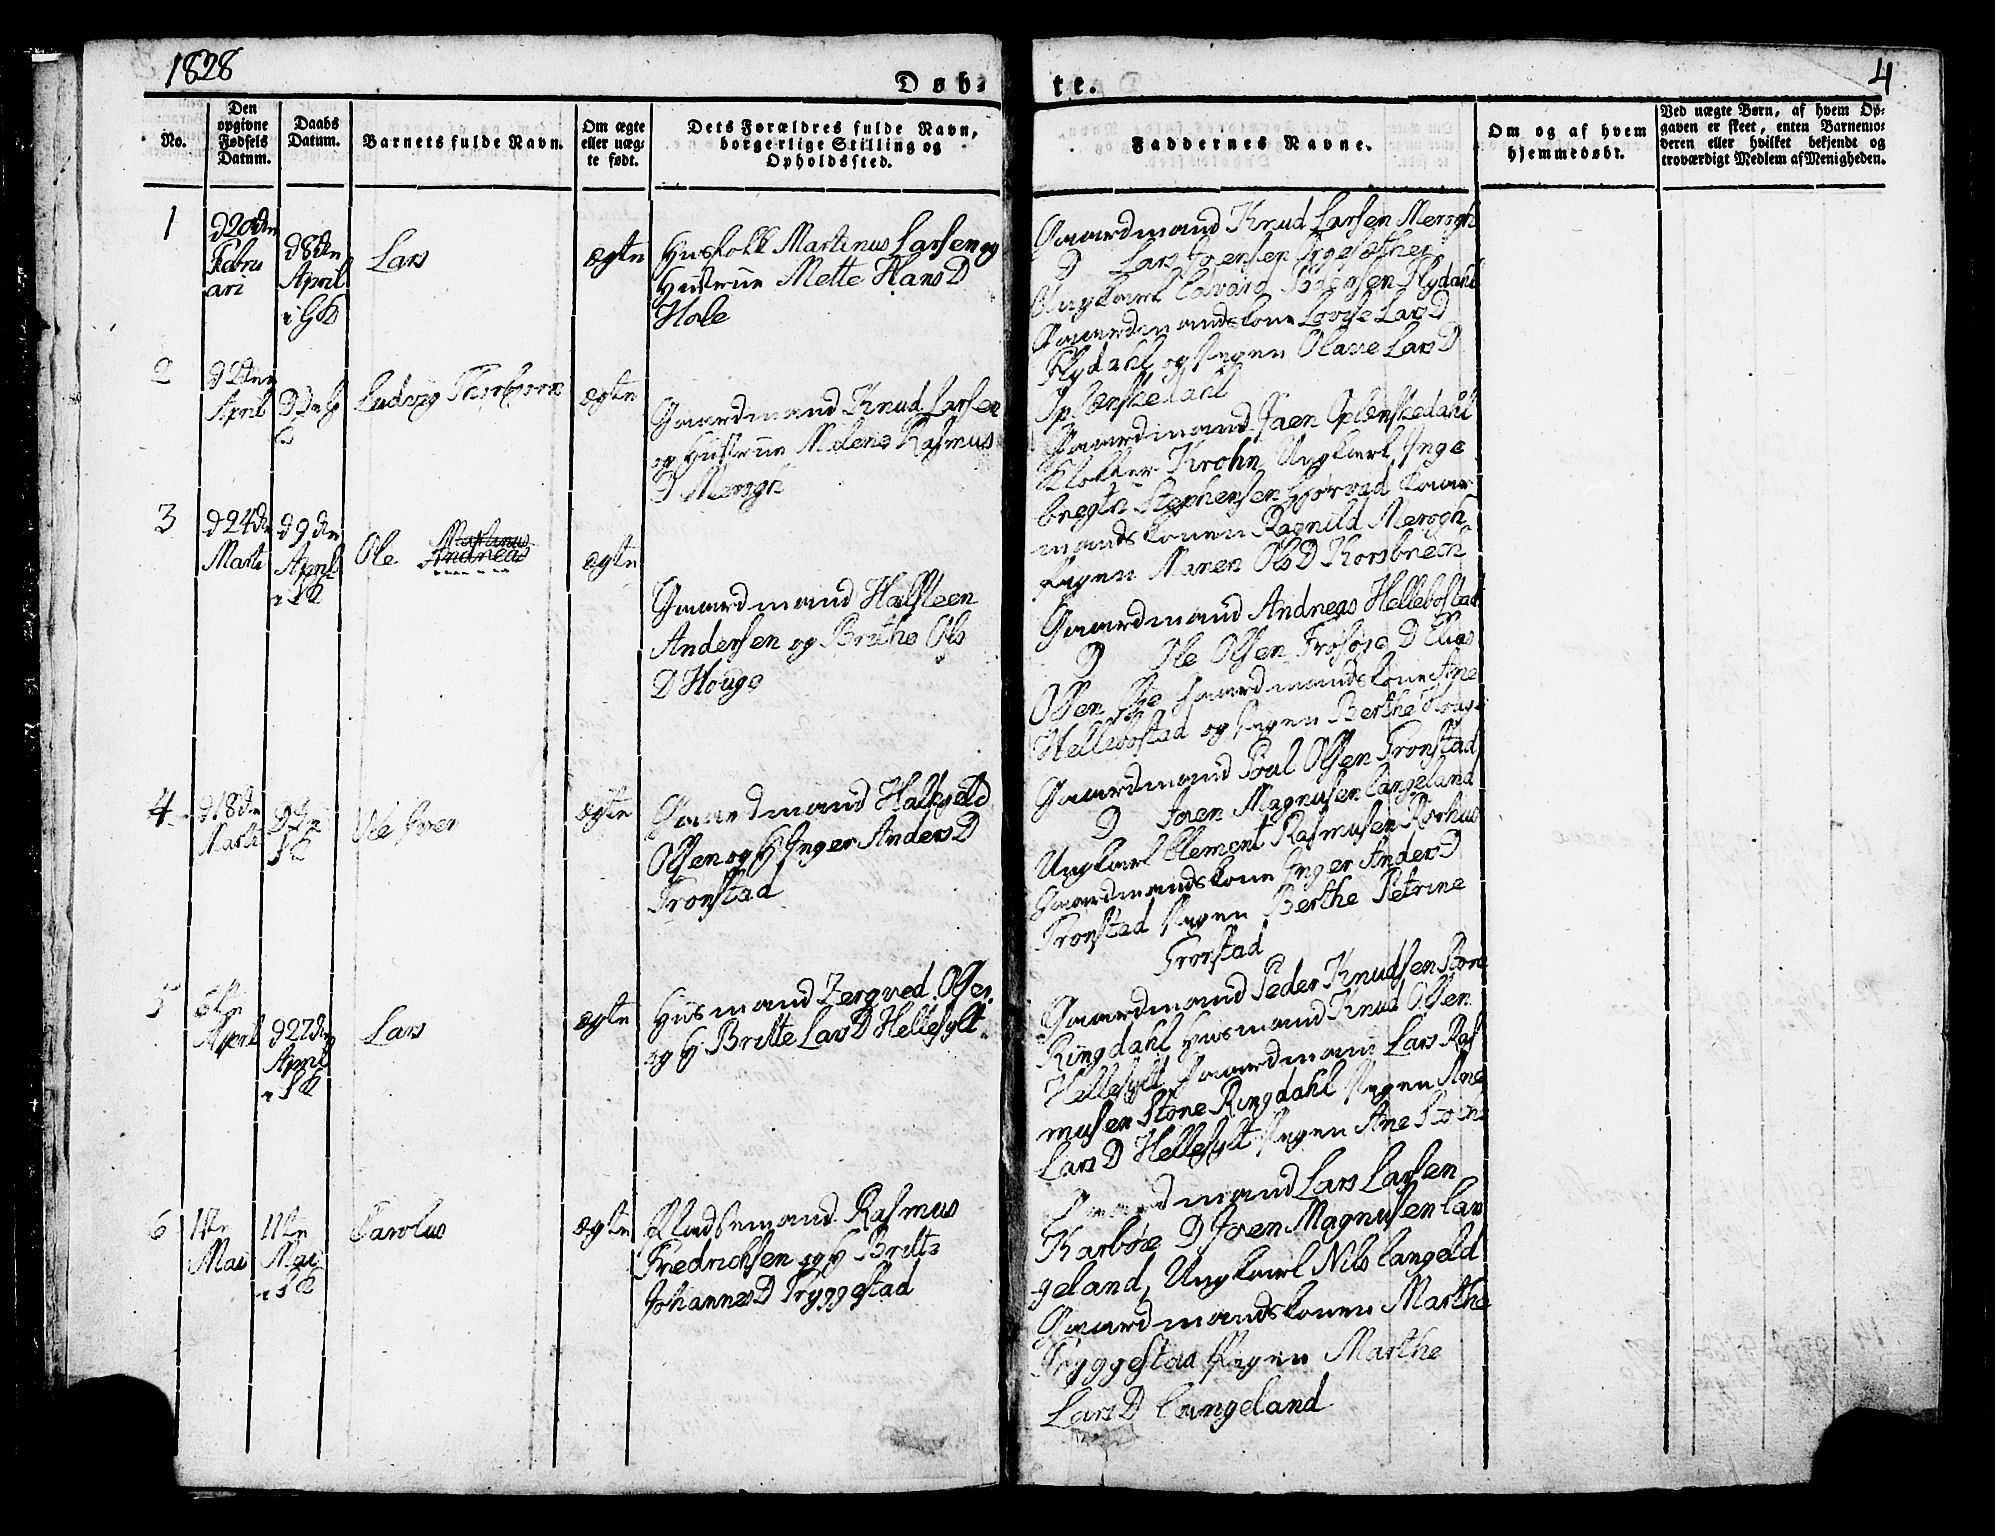 1828
4
Døb-
te.
No.
Den opgivne Fødsels Datum.
Daabs Datum.
Barnets fulde Navn.
Om ægte eller uægte født.
Dets Forældres fulde Navn, borgerlige Stilling og Opholdssted.
Faddernes Navne.
Om og af hvem hjemmedøbt.
Ved uægte Børn, af hvem Opgaven er skeet, enten Barnemoderen eller hvilket bekjendt og troværdigt Medlem af Menigheden.
1
D 20de
Febru
ari
D 8de
April
i
Lars
ægte
Husfolk Martinus Larsen og
Hustrue Mette Hans D
Hole
Gaardmand Knud Larsen Merogh
D Lars Joensen
Ungkarl Edvard Pedersen Flydahl
Gaardmandskone Lovise Lars D
Flydahl og Pigen Olave Lars D
2
D 2den
April
Ludvig Thorbjørn
ægte
Gaardmand Knud Larsen
og Hustrue Malene Rasmus
D Merogh
Gaardmand Joen Oplenskedahl
Klokker Krohn Ungkarl Inge
bregth Stephensen Gjørvad Gaar
mandskonen Ragnild Merogh
Pigen Maren Ols D Korsbrech
3
D 24de
Marti
D 9de
April
i
Ole Martinus
Andreas
ægte
Gaardmand Halsteen
Andersen og Brithe Ols
D Houge
Gaardmand Andreas Hellebostad
D Ole Olsen Frøsøje D Elias
Olsen Gaardmandskone Ane
Hellebostad og Pigen Berthe Houge
4
D 18de
Marti
Ole Iver
ægte
Gaardmand Halkgeld
Olsen og H Inger Anders D
Tronstad
Gaardmand Poul Olsen Tronstad
D Joen Magnusen Langeland
Ungkarl Clement Rasmusen Korhus
Gaardmandskone Inger Anders D
Tronstad Pigen Berthe Petrine
Tronstad
5
April
D 22de
April
i
Lars
ægte
Husmand Zergved Olsen
og H Britte Lars D Hellesylt
Gaardmand Peder Knudsen Store
Ringdahl Husmand Knud Olsen
Hellesylt Gaardmand Lars Ras
musen Store Ringdahl Pigen Ane
Lars D Hellesylt Pigen Ane
6
1ste
Mai
11te
Mai
i
Carolus
ægte
Pladsemand Rasmus
Fredrichsen og H Britte
Johannes D Tryggestad
Gaardmand Lars Larsen
Karbøe D Joen Magnusen Lan
geland, Ungkarl Nils Langeld
Gaardmandskonen Marthe
Tryggestad Pigen Marthe
Lars D Langeland